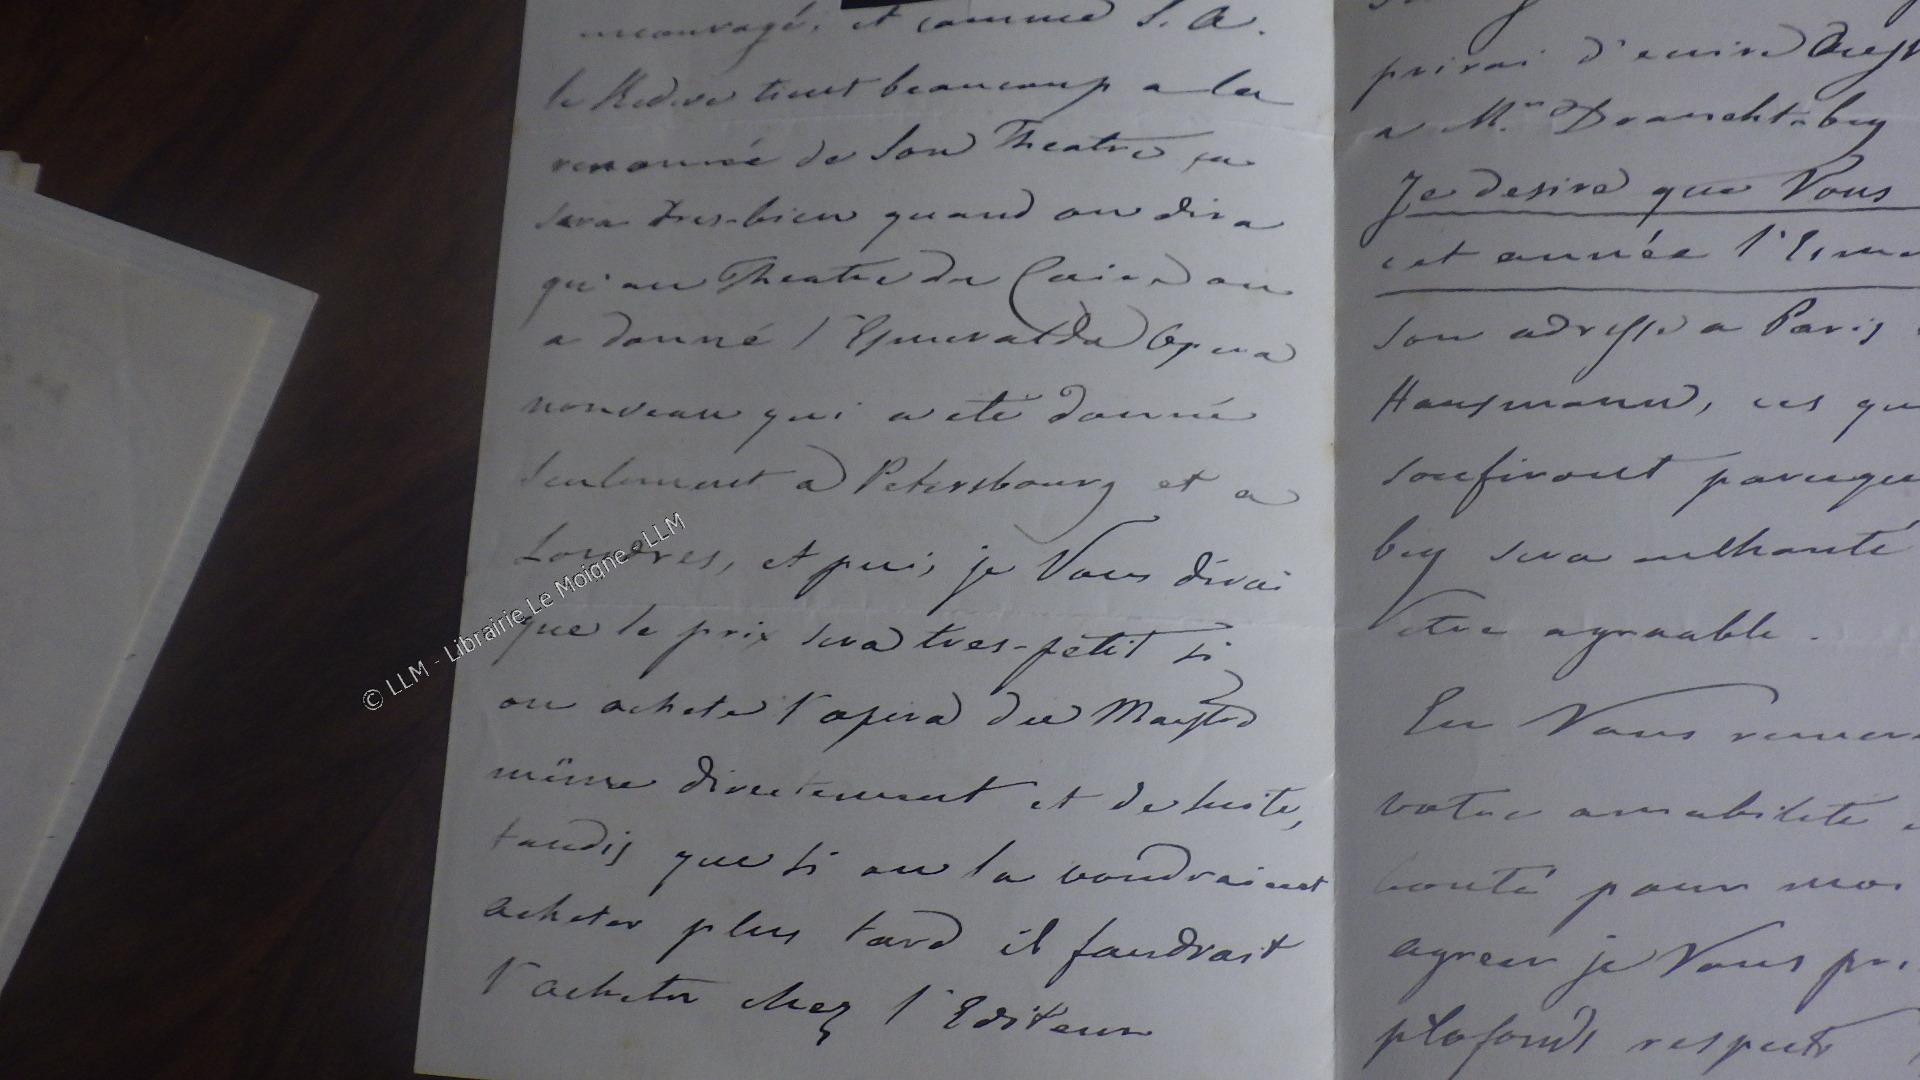 encouragé, et comme S. A.
le Kedive tient beaucoup a la
renomé de Son Theatre, ça
sera tres-bien quand on dira
qu'au Theatre du Caire on
a donné l'Esmeralda Opera
nouveau qui a eté donné
seulement a Petersbourg et a
Londres, et puis je Vous dirai
que le prix sera tres-petit si
on achete l'opera du Maystro
même directement et de suite,
tandis que si on la voudraient
acheter plus tard il faudrait
l'acheter chez l'Editeur
prirai d'ecrire
a M. Draneht-bey
Je desire que Vous
cet année l'Esme
son adresse a Paris
Hausmann, ces qu
soufiront parceque
bey sera enchanté
être agreable.
En Vous remer
votre amabilité
bonté pour moi
agreer je Vous pr
plofonds respects
© LLM - Librairie Le Moigne - LLM